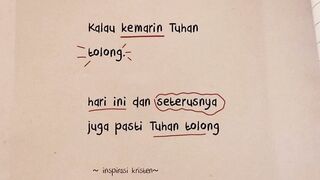 Kalau kemarin Tuhan
tolong.
hari ini dan seterusnya
juga pasti Tuhan tolong
~ inspirasi kristen~